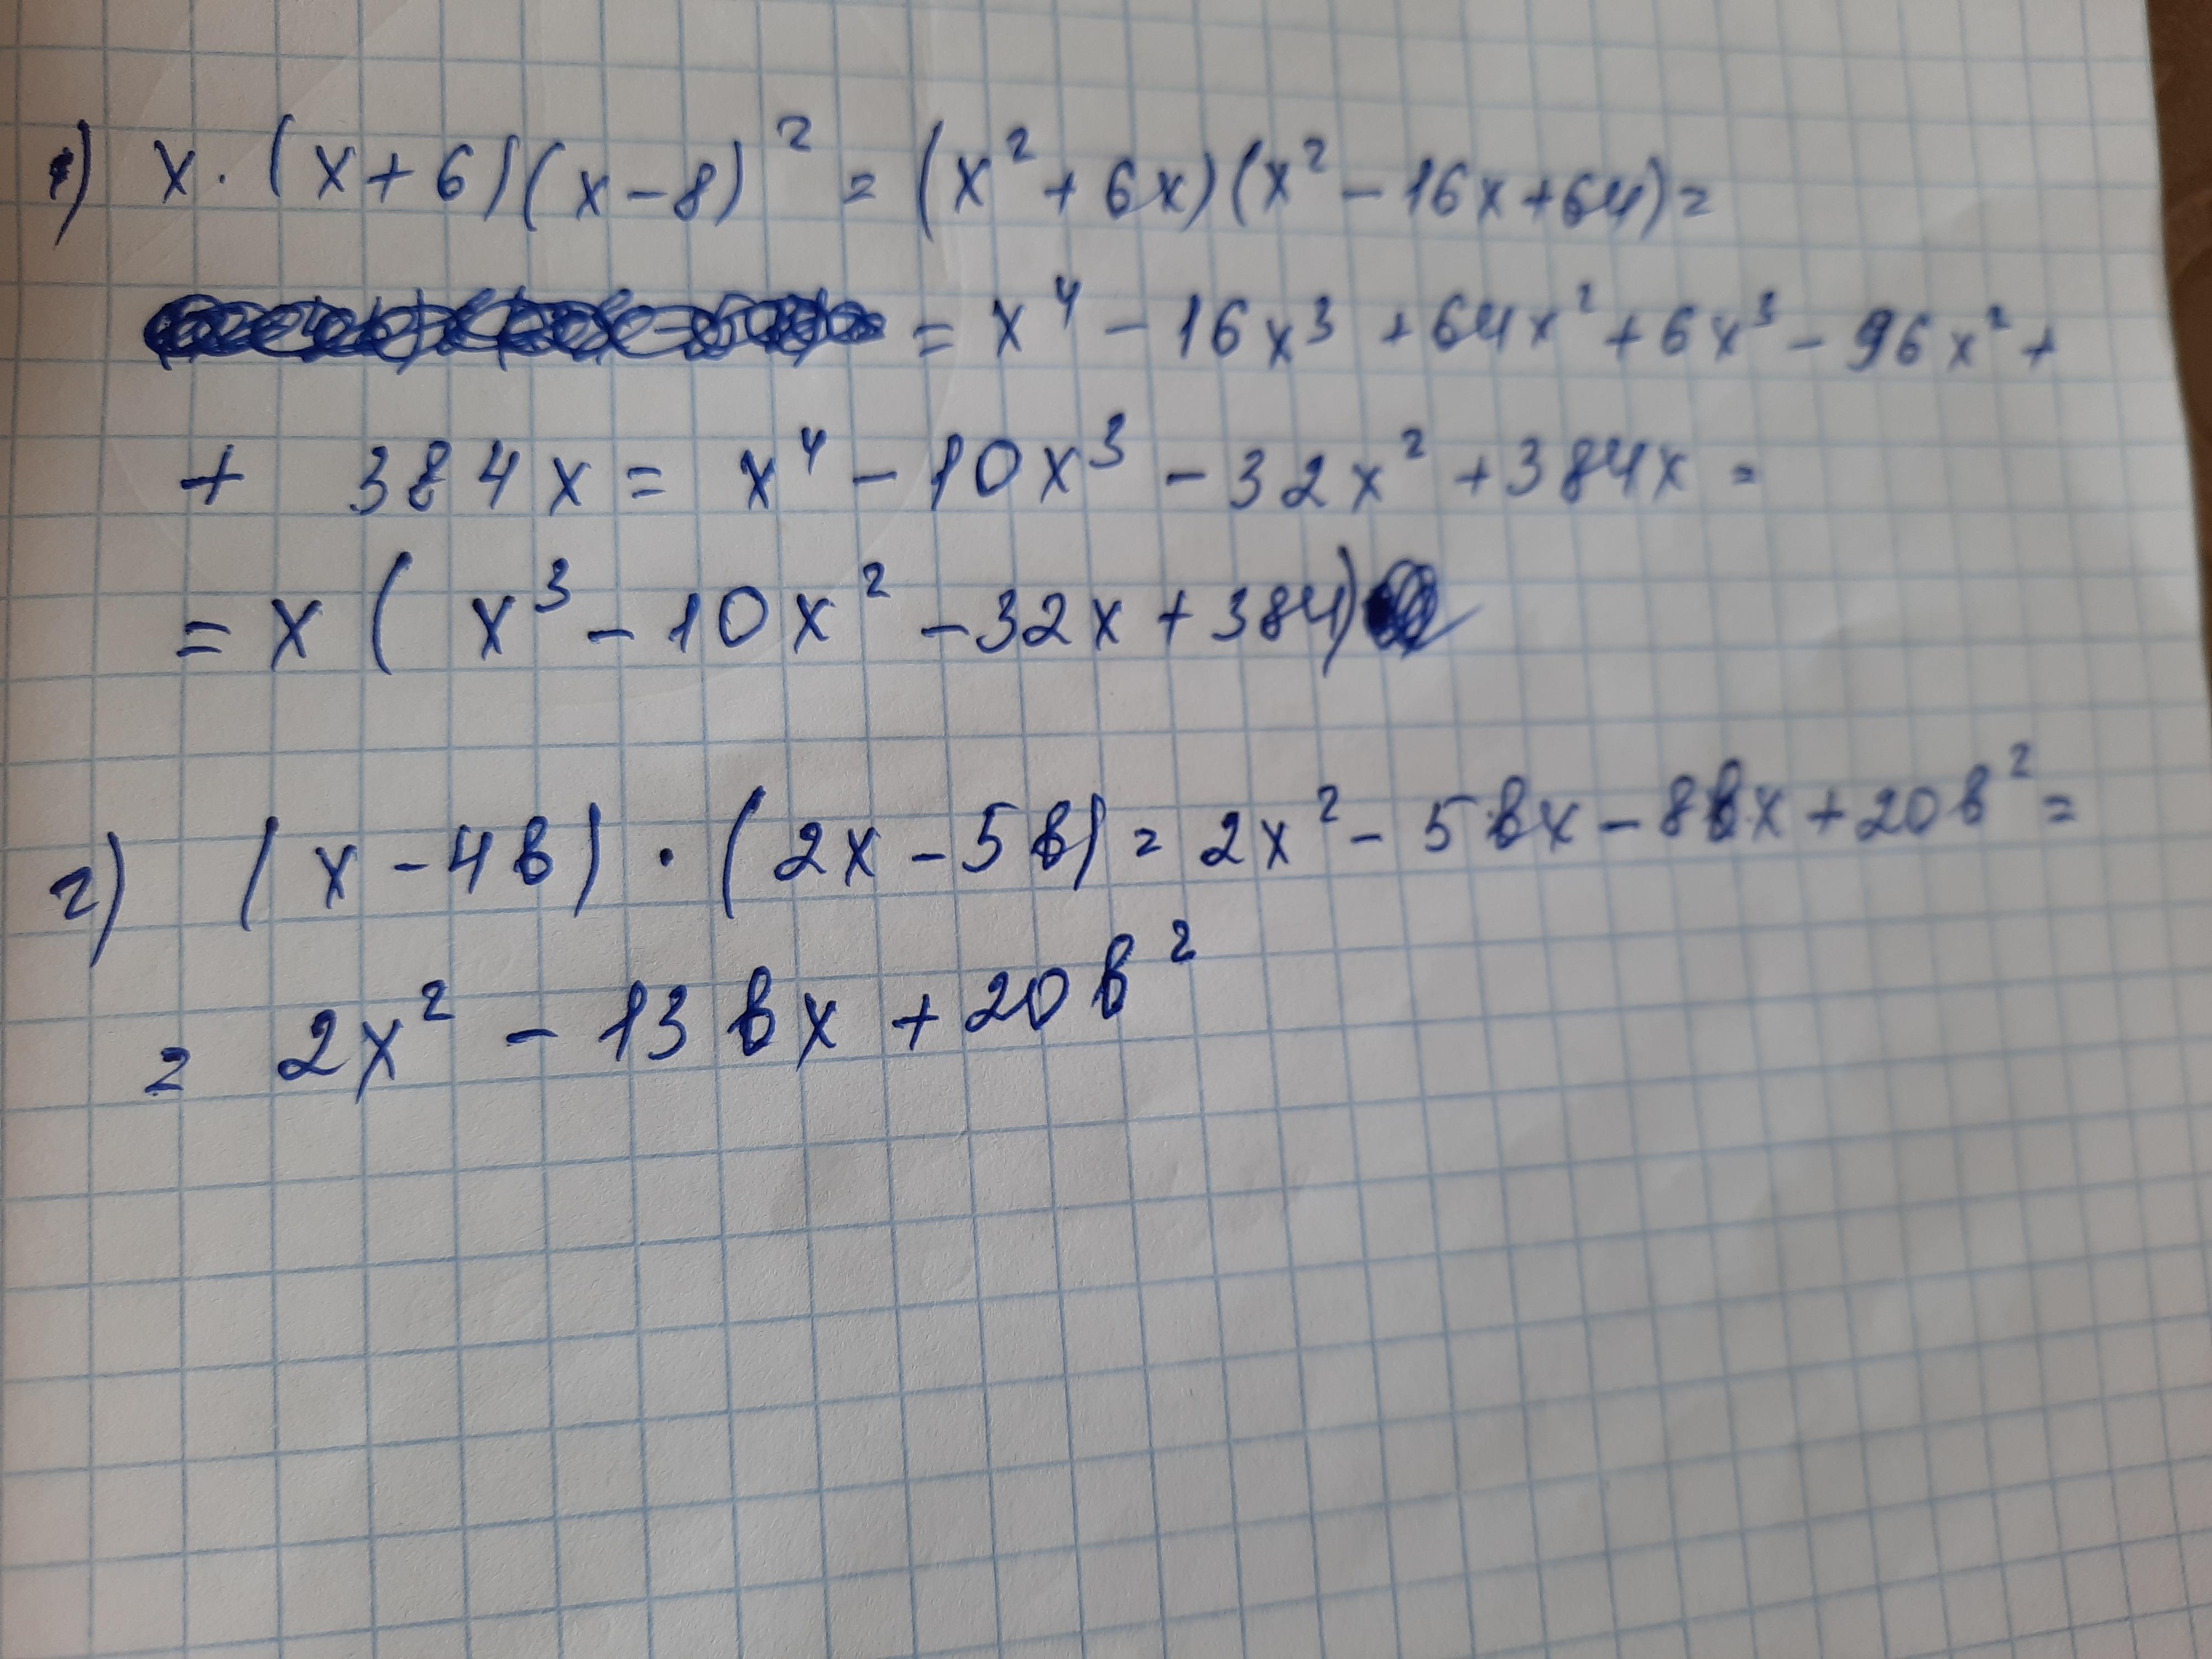 1) x·(x+6)(x-8)² = (x²+6x)(x²-16x+64)=
= x⁴ - 16x³ + 64x² + 6x³ - 96x² +
+ 384x = x⁴ - 10x³ - 32x² + 384x =
= x(x³ - 10x² - 32x + 384)
2) (x-4в)·(2x-5в) = 2x² - 5вx - 8вx + 20в² =
= 2x² - 13вx + 20в²